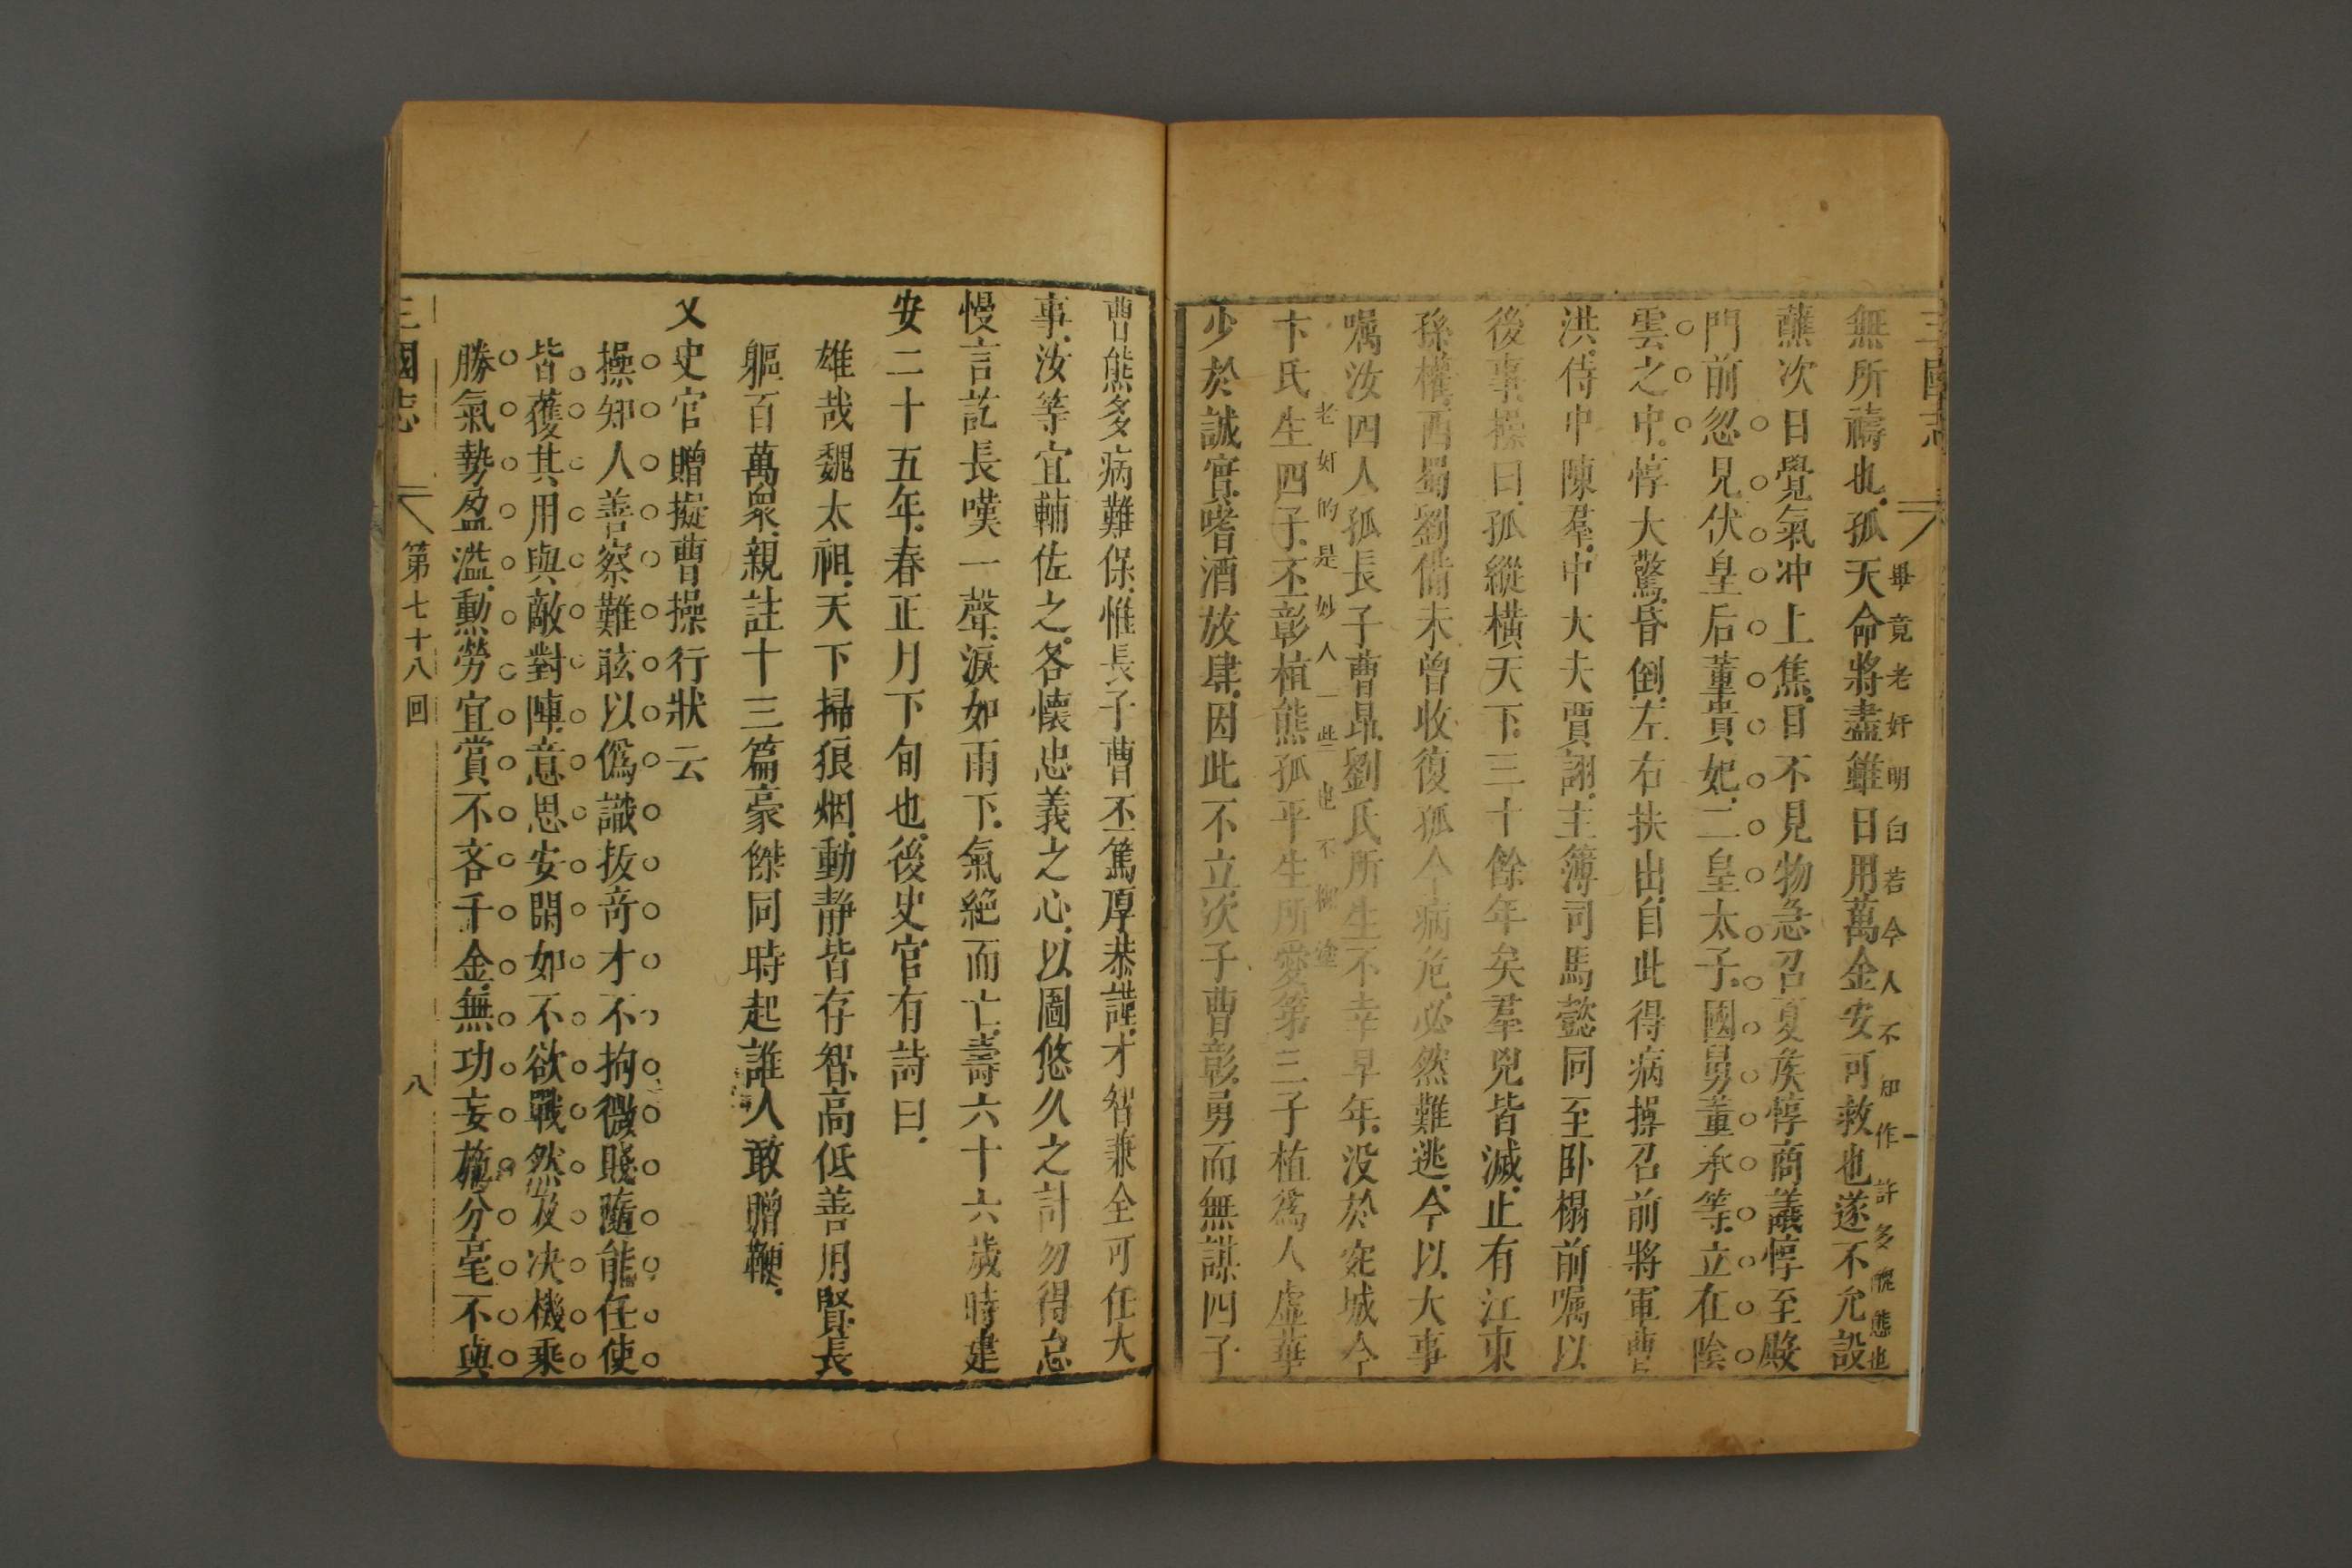 三國志
無所禱也孤天命將盡雖日用萬金安可救也遂不允設
畢竟老奸明白若今人不知作許多醜態也
蘸次日覺氣冲上焦目不見物急召夏矦惇商議惇至殿
門前忽見伏皇后董貴妃二皇太子國舅董承等立在陰
雲之中惇大驚昏倒左右扶出自此得病操召前將軍曹
洪侍中陳羣中大夫賈詡主簿司馬懿同至卧榻前嘱以
後事操曰孤縱橫天下三十餘年矣羣兇皆滅止有江東
孫權西蜀劉備未曾收復孤今病危必然難逃今以大事
嘱汝四人孤長子曹昂劉氏所生不幸早年没於宛城今
老奸的是妙人一些也不糊塗
卞氏生四子丕彰植熊孤平生所愛第三子植爲人虚華
少於誠實嗜酒放肆因此不立次子曹彰勇而無謀四子
曹熊多病難保惟長子曹丕篤厚恭謹才智兼全可任大
事汝等宜輔佐之各懷忠義之心以圖悠久之計勿得怠
慢言訖長嘆一聲淚如雨下氣絶而亡壽六十六歲時建
安二十五年春正月下旬也後史官有詩曰
雄哉魏太祖天下掃狼烟動靜皆存智高低善用賢長
軀百萬衆親註十三篇豪傑同時起誰人敢贈鞭
又史官贈擬曹操行狀云
操知人善察難眩以僞識拔奇才不拘微賤隨能任使
皆獲其用與敵對陣意思安閒如不欲戰然及决機乘
勝氣勢盈溢勳勞宜賞不吝千金無功妄施分毫不與
三國志 第七十八回 八